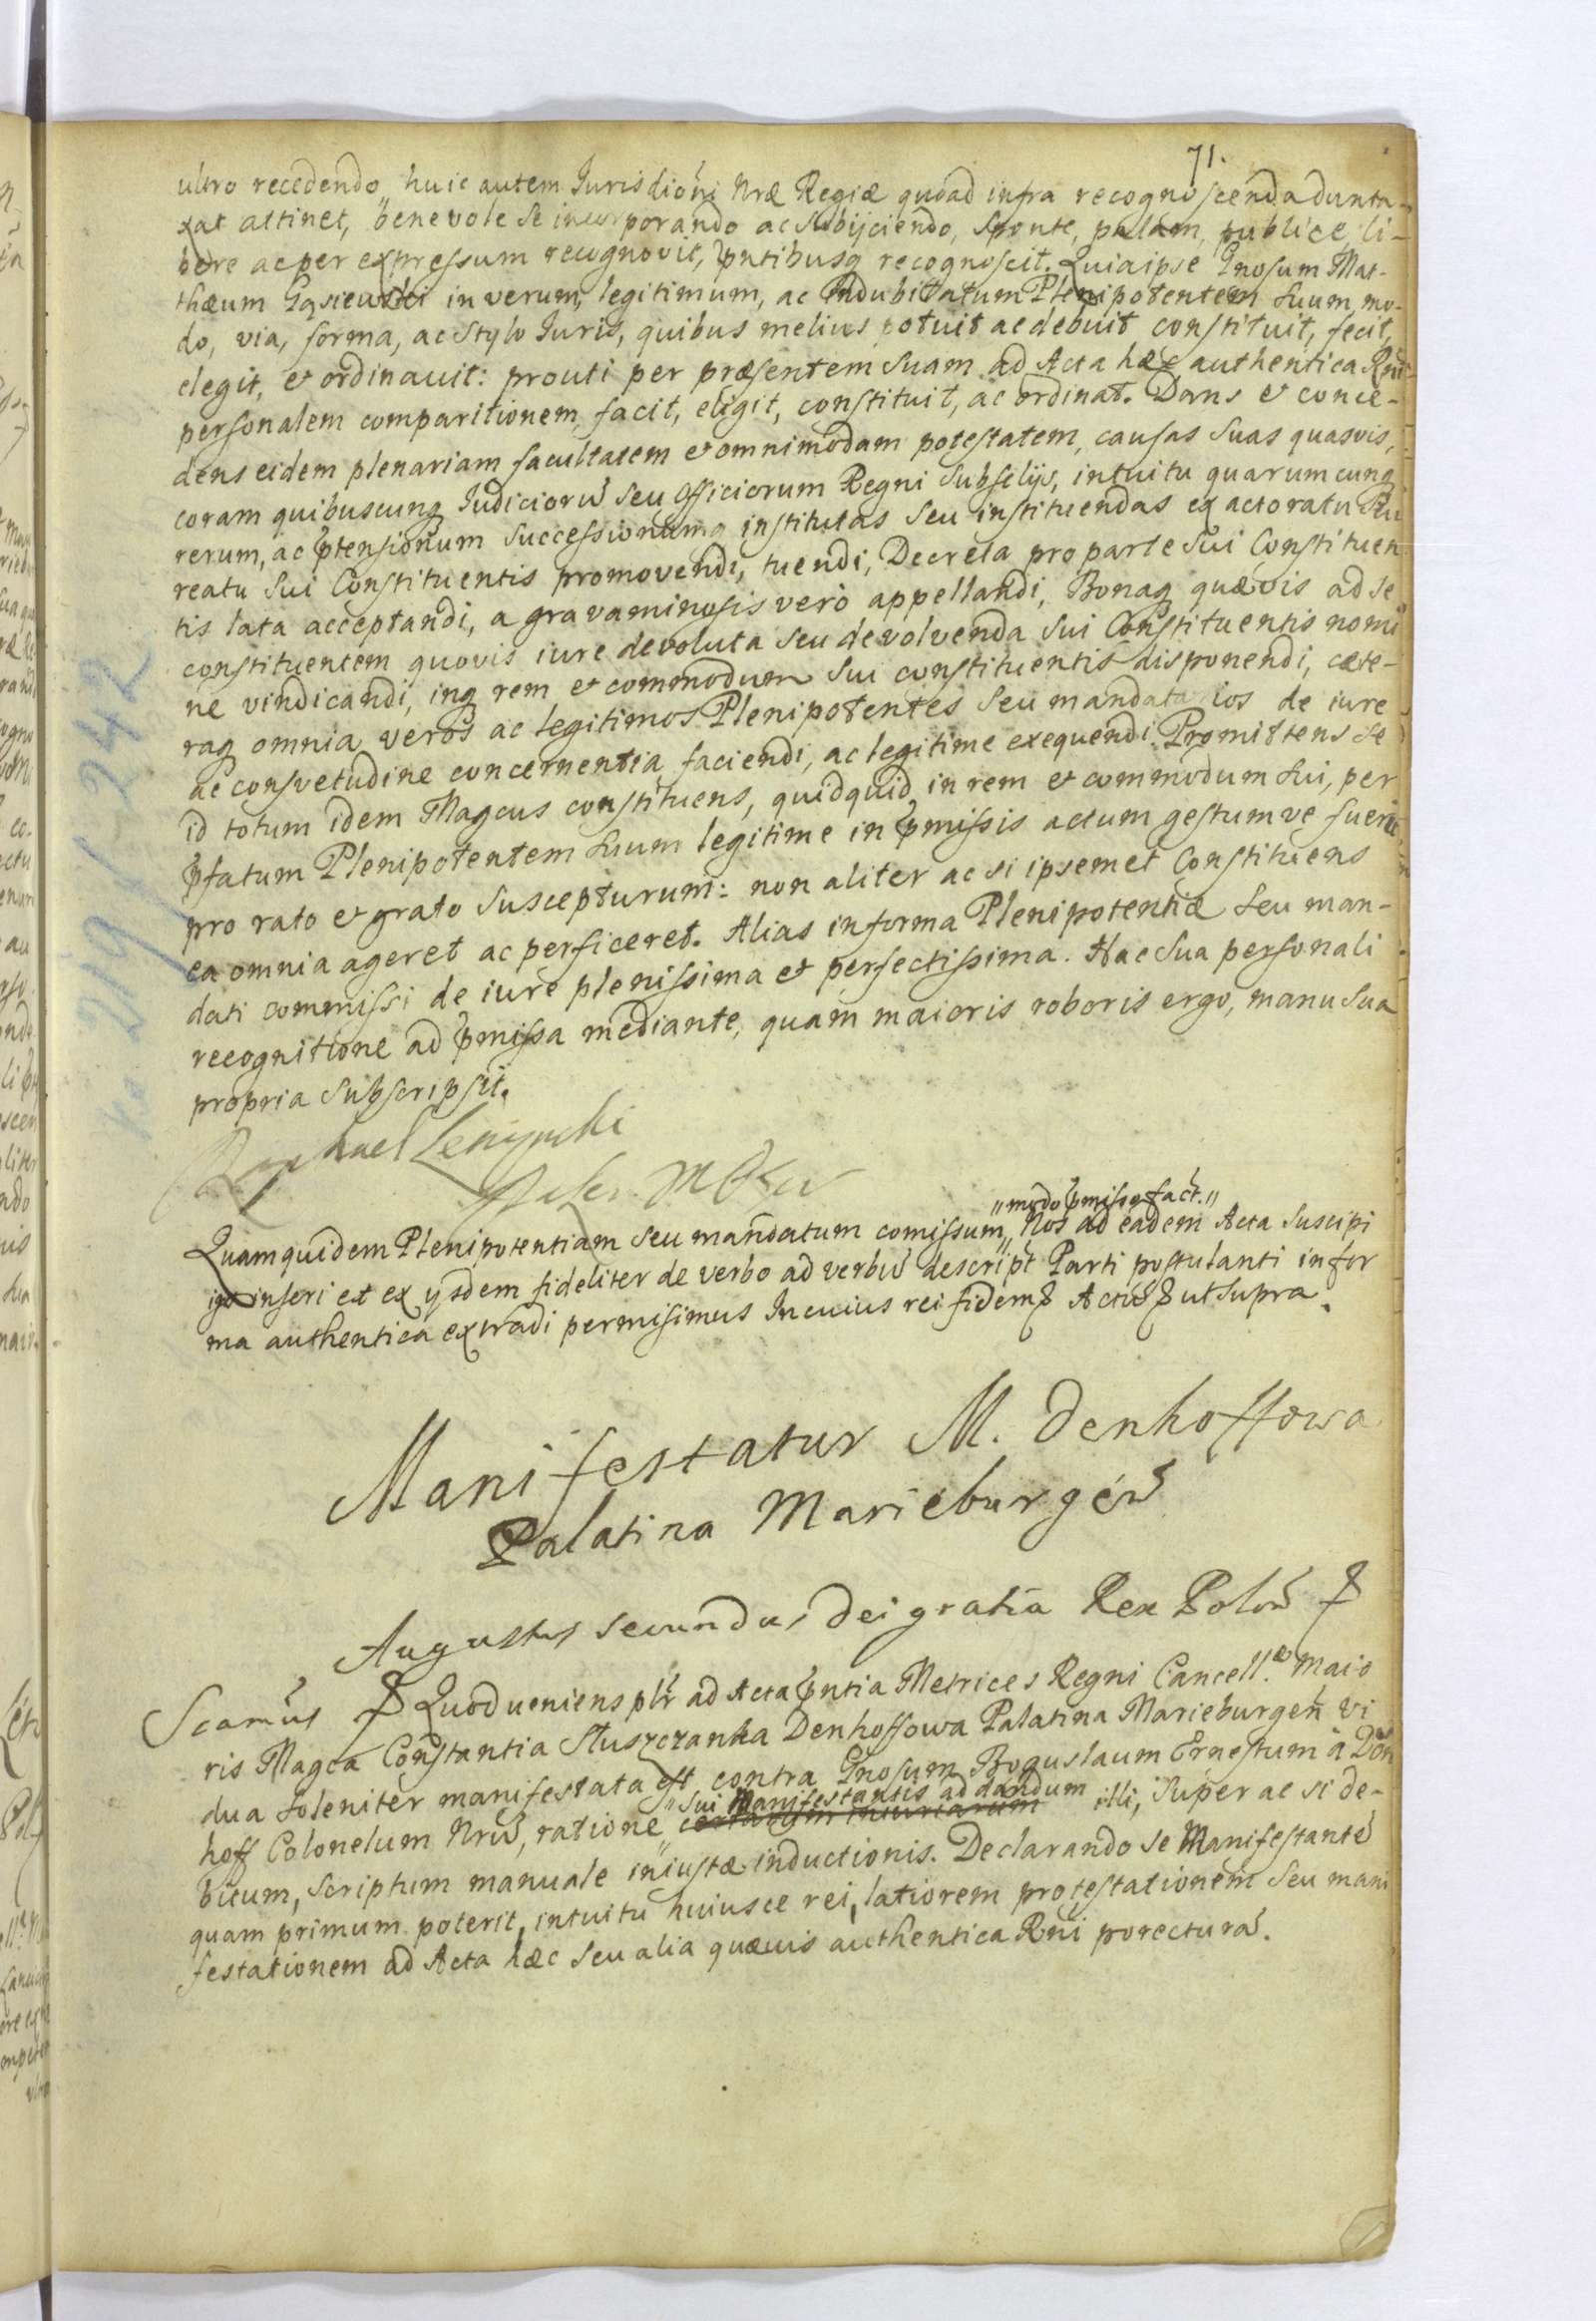 71.
ultro recedendo, huic autem Iurisdioni Nræ Regiæ quoad infra recognoscenda dunta-
xat attinet, benevole se incorporando ac subijciendo, sponte, palam, publice, li-
bere ac per expressum recognovit, pntibusq recognoscit. Quia ipse Gnosum Mat-
thæum Gąsiewski in verum, legitimum, ac indubitatum Plenipotentem suum, mo-
do, via, forma, ac stylo Iuris, quibus melius potuit ac debuit constituit, fecit,
elegit, et ordinauit: prouti per præsentem suam ad Acta hæc authentica Rni
personalem comparitionem, facit, eligit, constituit, ac ordinat. Dans et conce-
dens eidem plenariam facultatem et omnimodam potestatem, causas suas quasvis,
coram quibuscunq Iudiciorũ seu Officiorum Regni Subselijs, intuitu quarumcunq
rerum, ac ptensionum successionumq institutas seu instituendas ex actoratu seu
reatu sui Constituentis promovendi, tuendi, Decreta pro parte sui Constituen
tis lata acceptandi, a gravaminosis verò appellandi, Bonaq quævis ad se
constituentem quovis iure devoluta seu devolvenda sui Constituentis nomi
ne vindicandi, inq rem et commodum sui constituentis disponendi, cæte-
raq omnia veros ac legitimos Plenipotentes seu mandatarios de iure
ac consvetudine concernentia faciendi, ac legitime exequendi. Promittens se
id totum idem Magcus constituens, quidquid in rem et commodum sui, per
pfatum Plenipotentem suum legitime in pmissis actum gestumve fuerit
pro rato et grato suscepturum: non aliter ac si ipsemet Constituens
ea omnia ageret ac perficeret. Alias in forma Plenipotentiæ seu man-
dati commissi de iure plenissima et perfectissima. Hac sua personali
recognitione ad pmissa mediante, quam maioris roboris ergo, manu sua
propria subscripsit.
Raphael
"modo pmisso fact."
Quam quidem Plenipotentiam seu mandatum comissum, Nos ad eadem Acta suscipi
inseri et ex ijsdem fideliter de verbo ad verbũ descript Parti postulanti in for
ma authentica extradi permisimus In cuius rei fidem Actũ ut supra.
Manifestatur M. Denhoffowa
Palatina Marieburgen
Augustus secundus Dei gratia Rex Polon
Scamus Quod ueniens plr ad Acta pntia Metrices Regni Cancell.æ Maio
ris Magca Constantia Słuszczanka Denhoffowa Palatina Marieburgen vi
dua soleniter manifestata est contra Gnosum Boguslaum Ernestum à Den
"sui Manifestantis ad dandum
hoff Colonelum Nrũ, ratione certarum iniuriarum illi, super ac si de-
bitum, scriptum manuale iniustæ inductionis. Declarando se Manifestantẽ
quam primum poterit, intuitu huiusce rei, latiorem protestationem seu mani
festationem ad Acta hæc seu alia quævis authentica Rni porecturã.